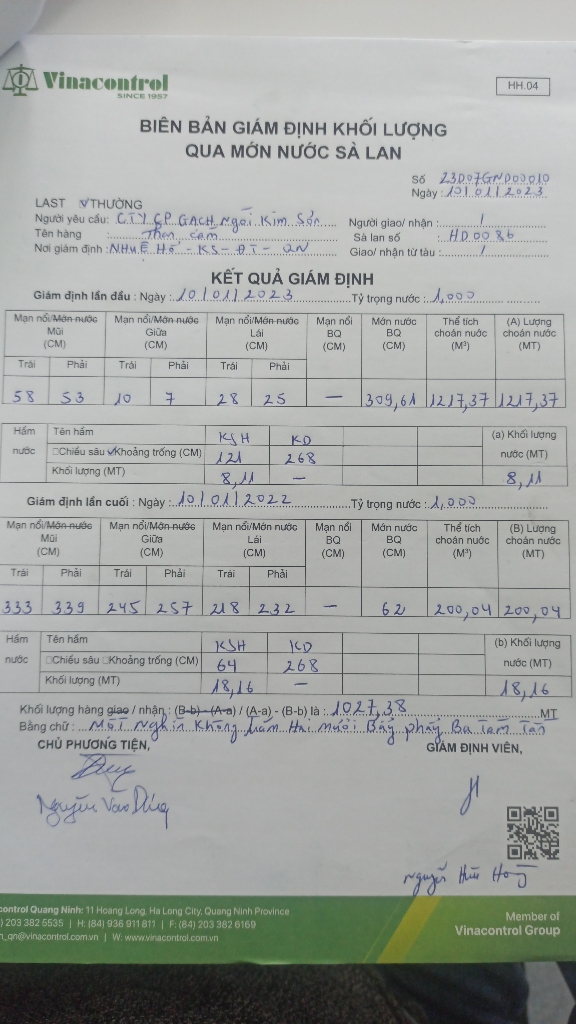 Vinacontrol
SINCE 1957
HH.04
BIÊN BẢN GIÁM ĐỊNH KHỐI LƯỢNG
QUA MỚN NƯỚC SÀ LAN
Số 23D07GND00010
Ngày : 10/01/2023
LAST ✓ THƯỜNG
Người yêu cầu: CTY CP GẠCH Ngói Kim Sơn
Người giao/ nhận : /
Tên hàng : Than cám
Sà lan số : HD0086
Nơi giám định : NHUỆ HỔ - KS - ĐT - QN
Giao/ nhận từ tàu : /
KẾT QUẢ GIÁM ĐỊNH
Giám định lần đầu : Ngày : 10/01/2023 Tỷ trọng nước : 1,000
Mạn nổi/Mớn nước Mũi (CM) Mạn nổi/Mớn nước Giữa (CM) Mạn nổi/Mớn nước Lái (CM) Mạn nổi BQ (CM) Mớn nước BQ (CM) Thể tích choán nước (M³) (A) Lượng choán nước (MT)
Trái Phải Trái Phải Trái Phải
58 53 10 7 28 25 — 309,61 1217,37 1217,37
Hầm nước Tên hầm KSH KD (a) Khối lượng nước (MT)
☐Chiều sâu ✓Khoảng trống (CM) 121 268
Khối lượng (MT) 8,11 — 8,11
Giám định lần cuối : Ngày : 10/01/2022 Tỷ trọng nước : 1,000
Mạn nổi/Mớn nước Mũi (CM) Mạn nổi/Mớn nước Giữa (CM) Mạn nổi/Mớn nước Lái (CM) Mạn nổi BQ (CM) Mớn nước BQ (CM) Thể tích choán nước (M³) (B) Lượng choán nước (MT)
Trái Phải Trái Phải Trái Phải
333 339 245 257 218 232 — 62 200,04 200,04
Hầm nước Tên hầm KSH KD (b) Khối lượng nước (MT)
☐Chiều sâu ☐Khoảng trống (CM) 64 268
Khối lượng (MT) 18,16 — 18,16
Khối lượng hàng giao / nhận : (B-b) - (A-a) / (A-a) - (B-b) là : 1027,38 MT
Bằng chữ : Một Nghìn Không trăm Hai mươi Bảy phẩy Ba Tám Tấn
CHỦ PHƯƠNG TIỆN, GIÁM ĐỊNH VIÊN,
Nguyễn Văn
Nguyễn Hữu
control Quang Ninh: 11 Hoang Long, Ha Long City, Quang Ninh Province
) 203 382 5535 | H: (84) 936 911 811 | F: (84) 203 382 6169
n_qn@vinacontrol.com.vn | W: www.vinacontrol.com.vn
Member of
Vinacontrol Group